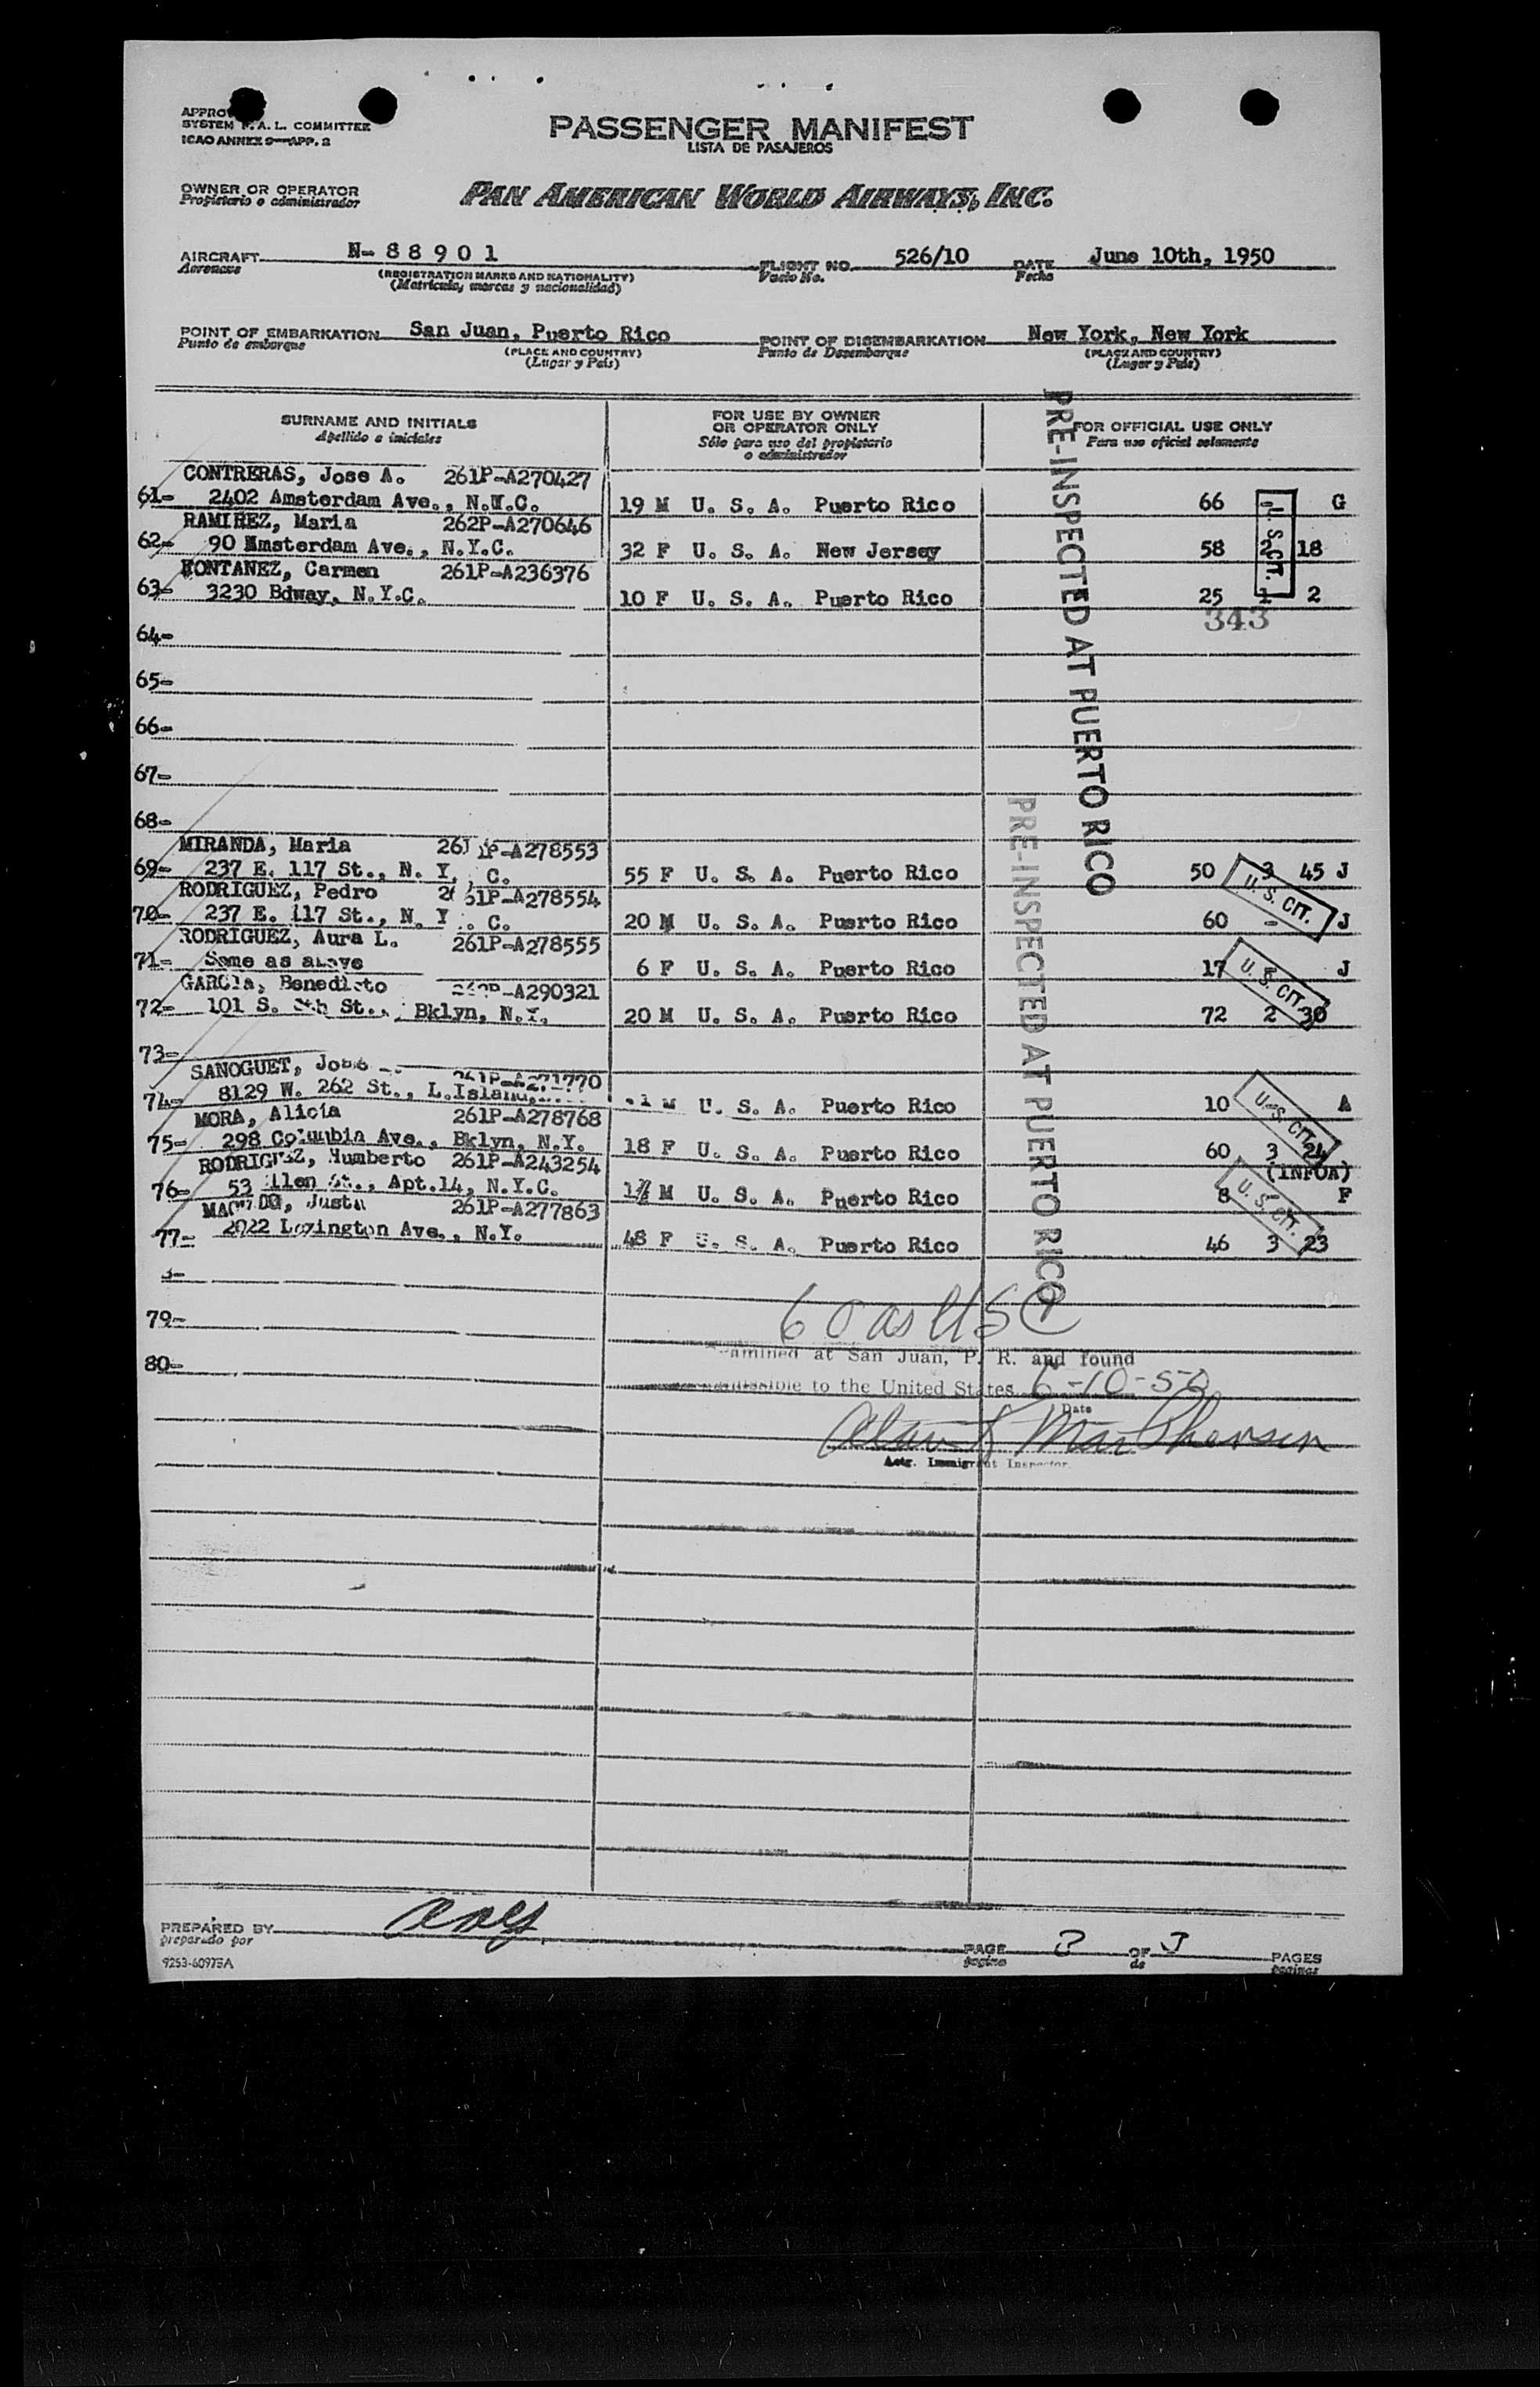 SYSTEM F.A.L. COMMITTEE
ICAO ANNEX 9—APP. 2
PASSENGER MANIFEST
LISTA DE PASAJEROS
OWNER OR OPERATOR
Propietario o administrador
PAN AMERICAN WORLD AIRWAYS, INC.
AIRCRAFT N-88901 FLIGHT NO. 526/10 DATE June 10th, 1950
Aeronave (REGISTRATION MARKS AND NATIONALITY) Vuelo No. Fecha
(Matrícula, marcas y nacionalidad)
POINT OF EMBARKATION San Juan, Puerto Rico POINT OF DISEMBARKATION New York, New York
Punto de embarque (PLACE AND COUNTRY) Punto de Desembarque (PLACE AND COUNTRY)
(Lugar y País) (Lugar y País)
SURNAME AND INITIALS FOR USE BY OWNER OR OPERATOR ONLY FOR OFFICIAL USE ONLY
Apellido e iniciales Sólo para uso del propietario o administrador Para uso oficial solamente
CONTRERAS, Jose A. 261P-A270427
61- 2402 Amsterdam Ave., N.Y.C. 19 M U. S. A. Puerto Rico 66 - G
RAMIREZ, Maria 262P-A270646
62- 90 Amsterdam Ave., N.Y.C. 32 F U. S. A. New Jersey 58 2 18
MONTANEZ, Carmen 261P-A236376
63- 3230 Bdway, N.Y.C. 10 F U. S. A. Puerto Rico 25 1 2
U. S. CIT.
343
64-
65-
66-
67-
68-
MIRANDA, Maria 261P-A278553
69- 237 E. 117 St., N. Y. C. 55 F U. S. A. Puerto Rico 50 3 45 J
RODRIGUEZ, Pedro 261P-A278554
70- 237 E. 117 St., N. Y. C. 20 M U. S. A. Puerto Rico 60 - J
U. S. CIT.
RODRIGUEZ, Aura L. 261P-A278555
71- Same as above 6 F U. S. A. Puerto Rico 17 - J
GARCIA, Benedicto A290321
72- 101 S. St., Bklyn, N.Y. 20 M U. S. A. Puerto Rico 72 2 30
U. S. CIT.
73-
SANOGUET, Jose 261P-A271770
74- 8129 W. 262 St., L.Island, M U. S. A. Puerto Rico 10 - A
MORA, Alicia 261P-A278768
75- 298 Columbia Ave., Bklyn, N.Y. 18 F U. S. A. Puerto Rico 60 3 24
U. S. CIT.
(INFOA)
RODRIGUEZ, Humberto 261P-A243254
76- 53 Allen St., Apt.14, N.Y.C. M U. S. A. Puerto Rico 8 - F
Justa 261P-A277863
77- 2022 Lexington Ave., N.Y. 48 F U. S. A. Puerto Rico 46 3 23
U. S. CIT.
79-
80-
PRE-INSPECTED AT PUERTO RICO
PRE-INSPECTED AT PUERTO RICO
60 as USC
Examined at San Juan, P. R. and found
admissible to the United States 6-10-50
Date
Actg. Immigrant Inspector
PREPARED BY
preparado por
PAGE 3 OF 3 PAGES
página de páginas
9253-60973A